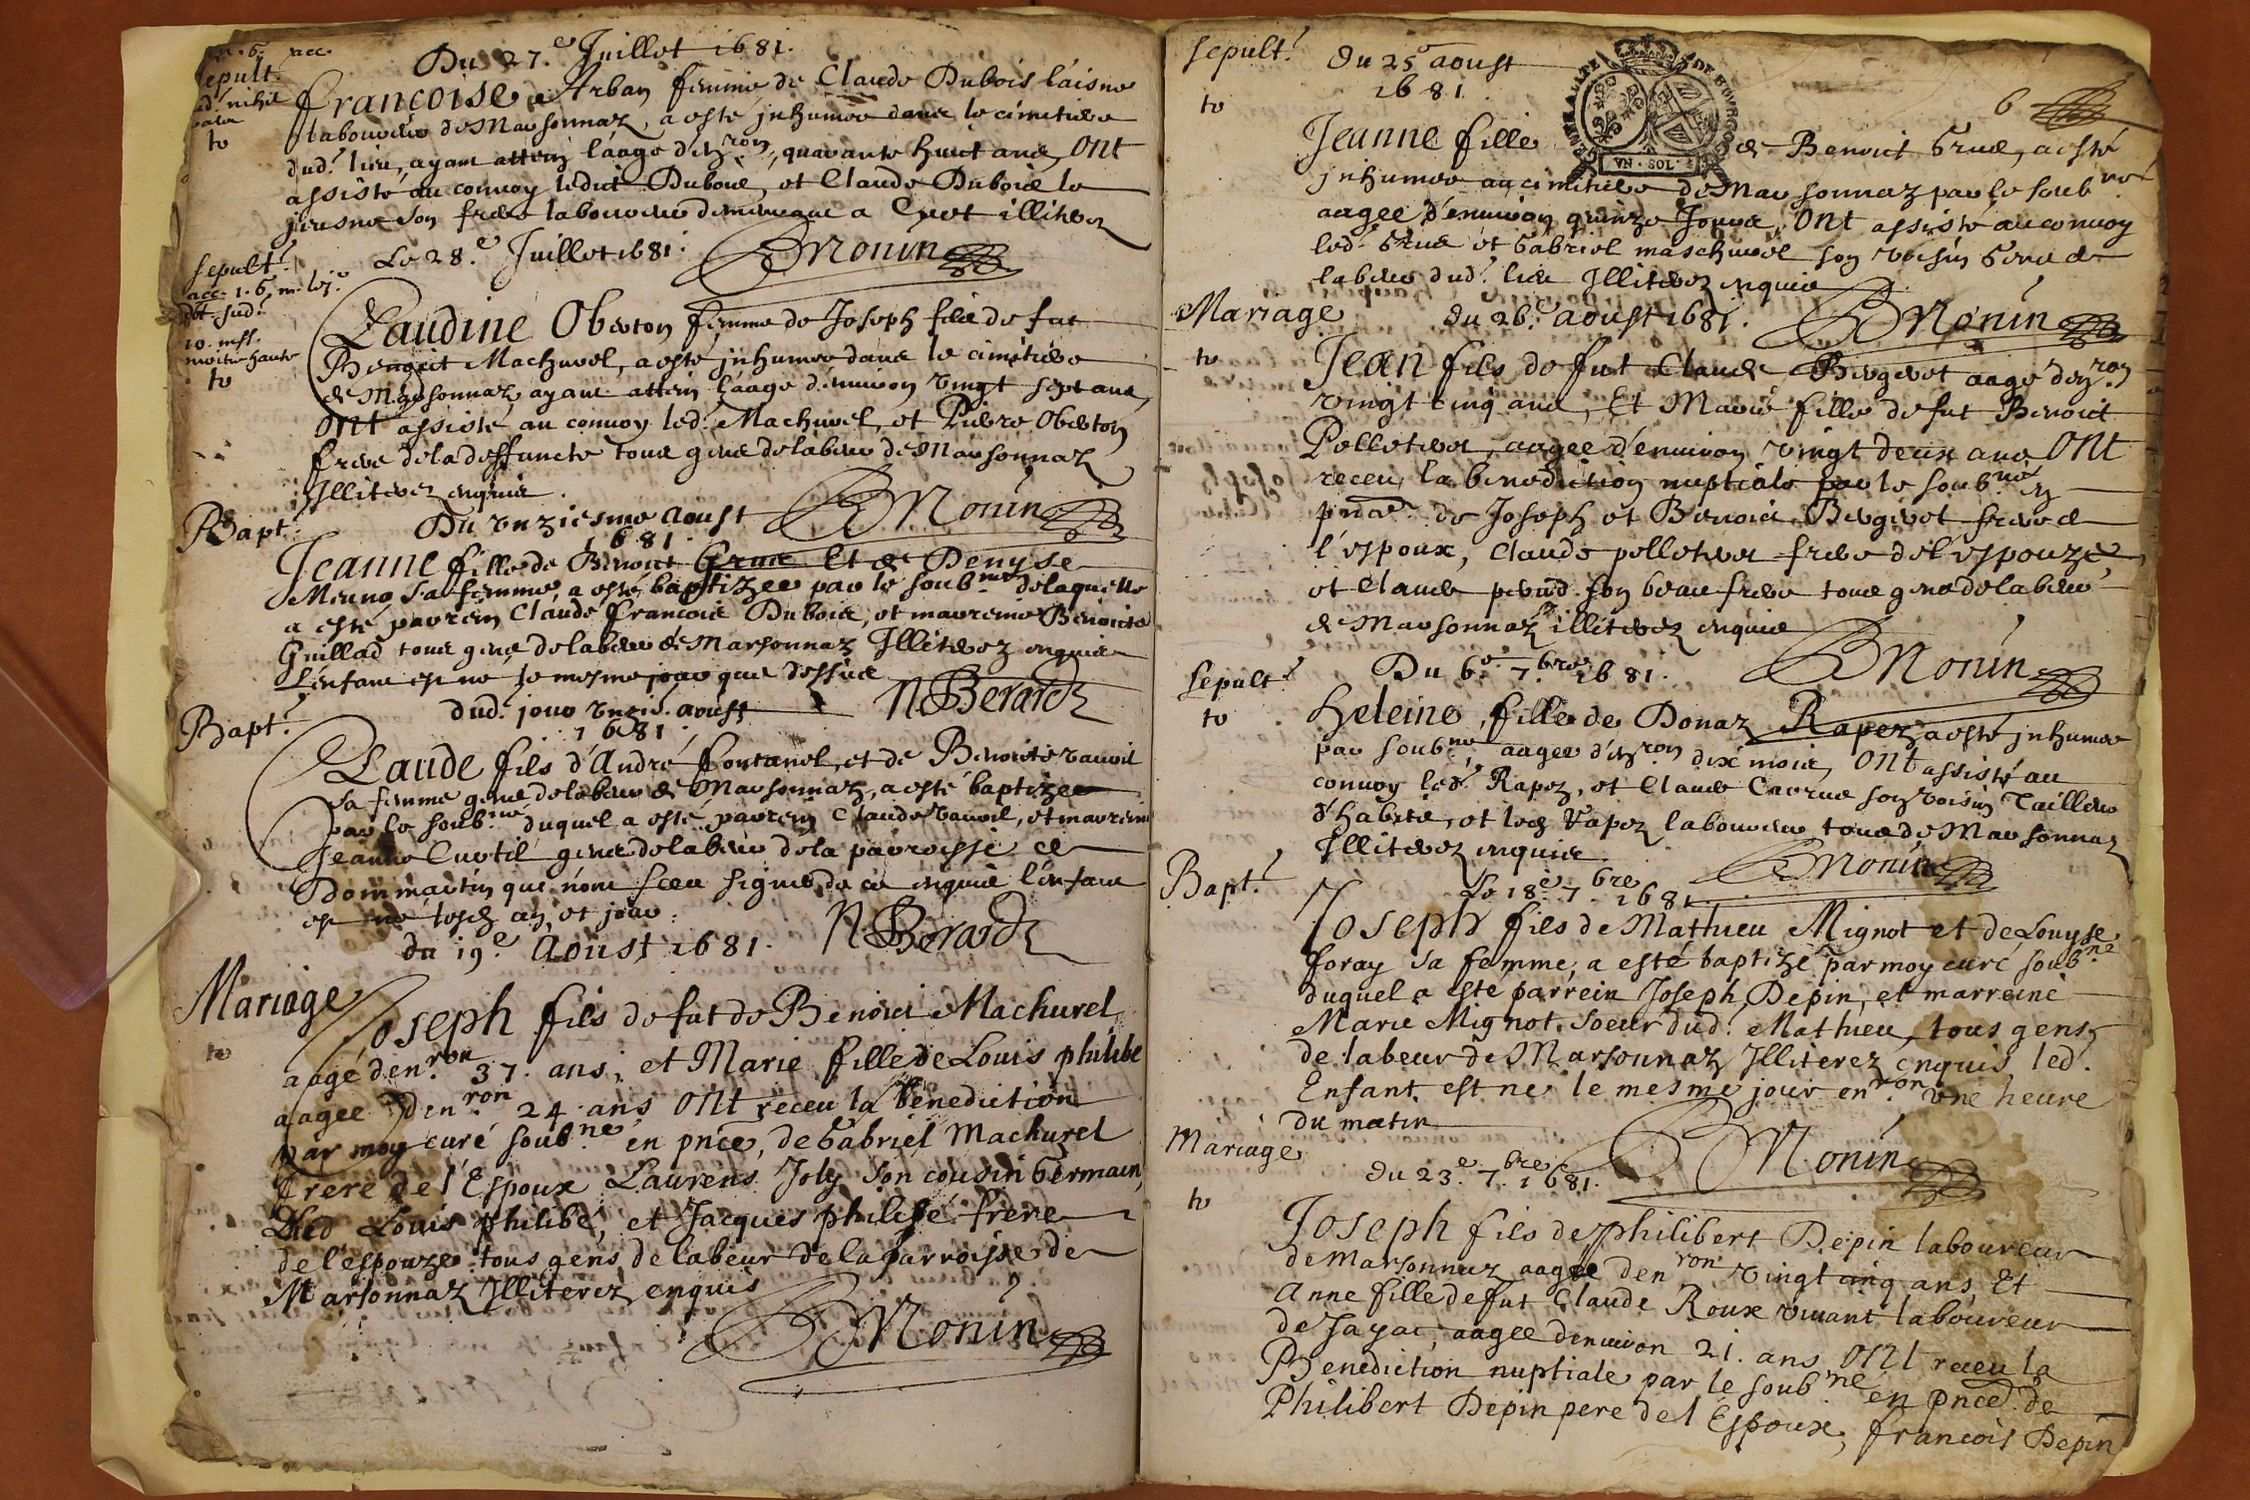 Du 27.e Juillet 1681.
Sepult.
Françoise Arban femme de Claude Dubois laisne
laboureur de Marsonnaz, a esté jnhumee dans le cimetiere
dud. lieu, ayant attein l'aage d'en.ron quarante huict ans, Ont
assisté au convoy ledict Dubois, et Claude Dubois le
jeusne son frere laboureur
to
Monin
Le 28.e Juillet 1681.
Sepult.
Claudine Oberton femme de Joseph fils de fut
Benoict Machurel, a esté jnhumee dans le cimetiere
de Marsonnaz ayant attein l'aage d'environ vingt sept ans,
Ont assisté au convoy led. Machurel, et Pierre Oberton
frere de la deffuncte tous gens de labeur de Marsonnaz
Jlliterez enquis.
moitie haute
to
Monin
Bapt.
Du unziesme Aoust
1681.
Jeanne fille de Benoict Grue Et de Denyse
sa femme, a esté baptizee par le soub.né de laquelle
a esté parrein Claude François Dubois, et marreine Benoicte
Guillad tous gens de labeur de Marsonnaz Jlliterez enquis
L'enfant est né le mesme jour que dessus
N Berard
Bapt.
dud. jour unzie. aoust
1681.
Claude fils d'André Fontanel, et de Benoicte
sa femme gens de labeur de Marsonnaz, a esté baptizee
par le soub.né duquel a esté parrein Claude, et marreine
Jeanne Curtil gens de labeur de la parroisse de
Dommartin qui n'ont sceu signer de ce enquis l'enfant
est né lesd. an, et jour.
N Berard
du 19.e Aoust 1681.
Mariage
Joseph fils de fut de Benoict Machurel
aagé den.ron 37. ans, et Marie fille de Louis philibé
aagee den.ron 24 ans Ont receu la benediction
par moy curé soub.né en pnce, de Gabriel Machurel
frere de l'Espoux Laurens Joly son cousin Germain,
Dud Louis philibé, et Jacques philibé frere
de l'espouze tous gens de labeur de la parroisse de
Marsonnaz Jlliterez enquis
to
Monin
Sepult.
du 25 aoust
1681.
to
6
GENERALITE DE BOURGOGNE
Jeanne fille de Benoict Grue, a esté
jnhumee au cimetiere de Marsonnaz par le soub.né
aagee d'environ quinze Jours, Ont assisté au convoy
led. Grue et Gabriel maschurel son voisin Gens de
labeur dud. lieu Jlliterez enquis
Monin
Mariage
du 26.e aoust 1681.
to
Jean fils de fut Claude Bergerot aagé d'en.ron
vingt cinq ans, Et Marie fille de fut Benoict
Pelletier, aagee d'environ vingt deux ans Ont
receu la benediction nuptiale par le soub.né en
pnce de Joseph et Benoict Bergerot freres de
l'espoux, Claude pelletier frere de l'espouze,
et Claude perrud son beau frere tous gens de labeur
de Marsonnaz illiterez enquis
Monin
Sepult.
Du 6.e 7.bre 1681.
to
Heleine fille de Donaz Rapez a esté jnhumee
par soub.né aagee d'en.ron dix mois, Ont assisté au
convoy led. Rapez, et Claude son voisin Tailleur
d'habits, et led Rapez laboureur tous de Marsonnaz
Jlliterez enquis
Monin
Bapt.
Le 18.e 7.bre 1681
Joseph fils de Mathieu Mignot et de Louyse
foray sa femme, a esté baptizé par moy curé soub.né
duquel a esté parrein Joseph Depin, et marreine
Marie Mignot soeur dud. Mathieu, tous gens
de labeur de Marsonnaz Jlliterez enquis led.
Enfant est né le mesme jour en.ron une heure
du matin
Monin
Mariage
du 23.e 7.bre 1681.
to
Joseph fils de philibert Depin laboureur
de Marsonnaz aagee den.ron vingt cinq ans, Et
Anne fille de fut Claude Roux vivant laboureur
de Jayac, aagee denviron 21. ans, Ont receu la
Benediction nuptiale par le soub.né en pnce de
Philibert Depin pere de l'Espoux, francois Depin